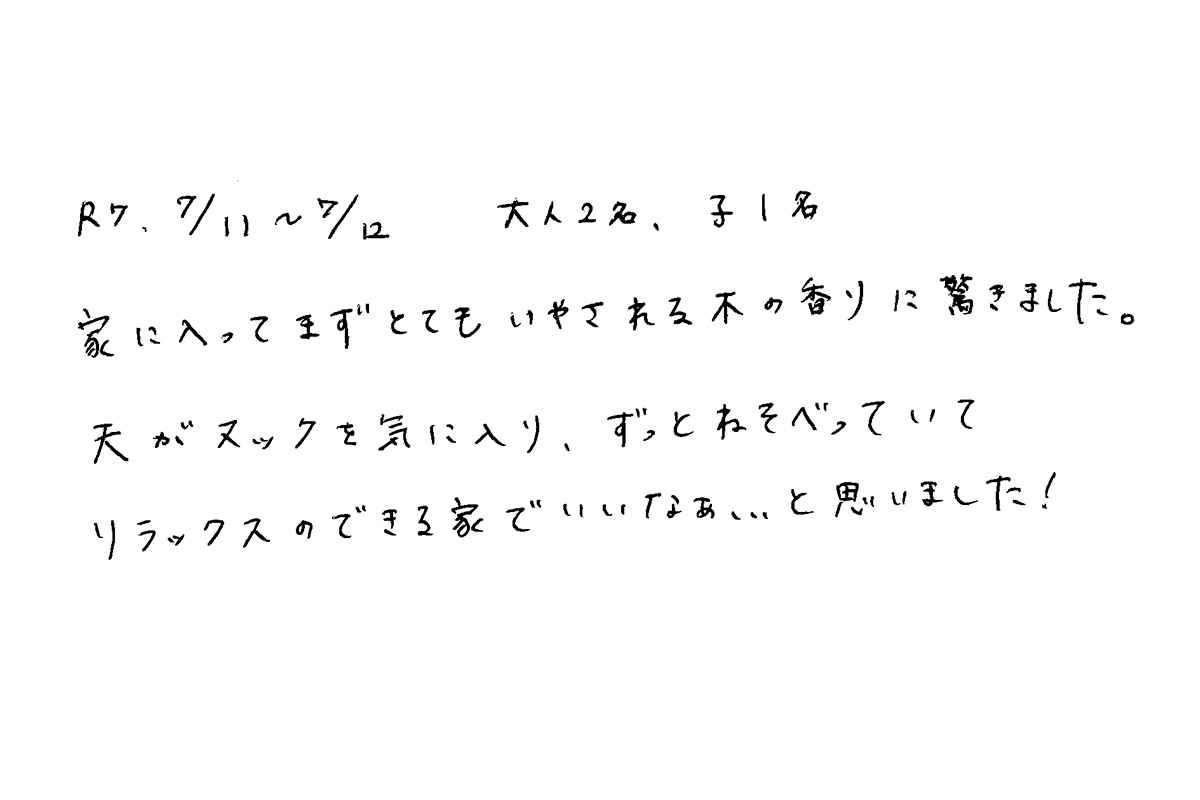 R7. 7/11～7/12 大人2名、子1名
家に入ってまずとてもいやされる木の香りに驚きました。
夫がヌックを気に入り、ずっとねそべっていて
リラックスのできる家でいいなぁ...と思いました！